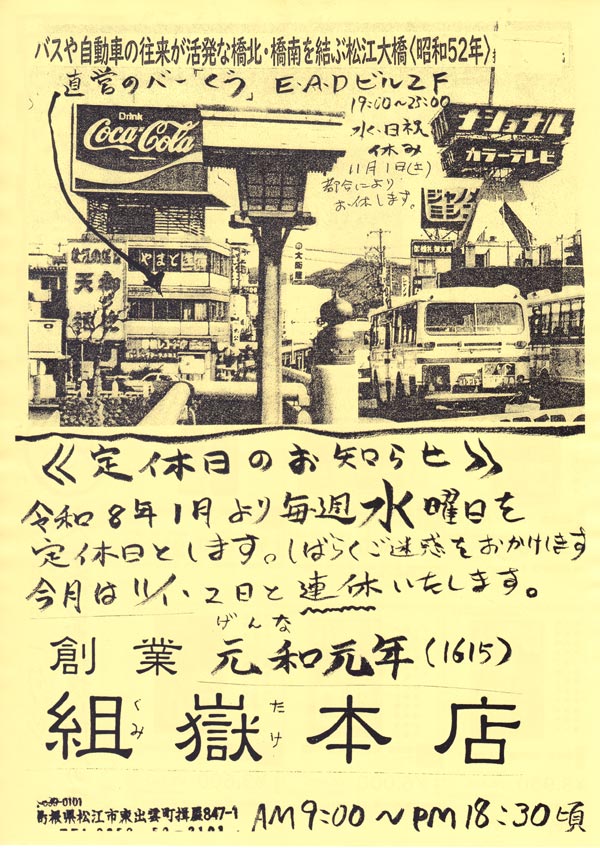 バスや自動車の往来が活発な橋北・橋南を結ぶ松江大橋〈昭和52年〉
直営のバー「くう」 E・A・Dビル2F
19:00〜25:00
水、日祝
休み
11月1日(土)
都合により
お休します。
Drink
Coca-Cola
ナショナル
カラーテレビ
ジャノメ
ミシン
やまと
大阪屋
≪定休日のお知らせ≫
令和8年1月より毎週水曜日を
定休日とします。しばらくご迷惑をおかけします
今月は11/1・2日と連休いたします。
げんな
創業 元和元年(1615)
組嶽本店
くみ たけ
島根県松江市東出雲町揖屋847-1
AM9:00〜PM18:30頃